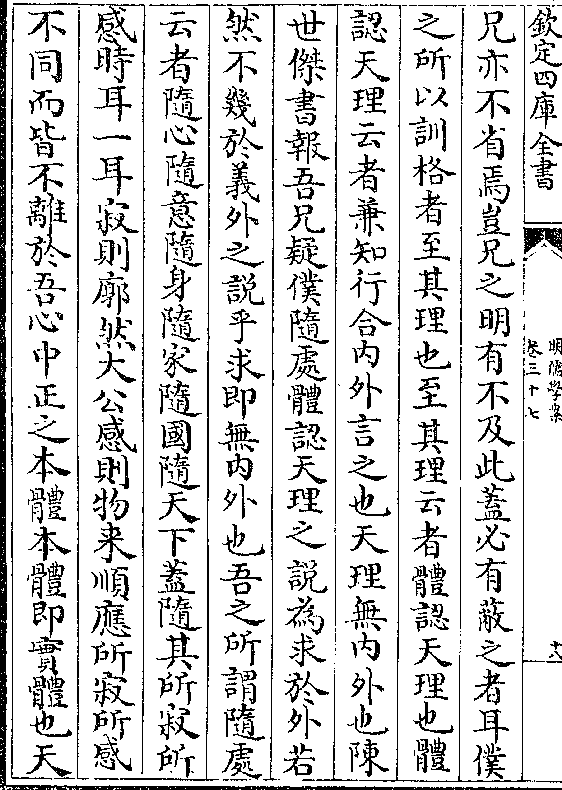 欽定四庫全書
明儒學案
卷三十七
十八
兄亦不省焉豈兄之明有不及此蓋必有蔽之者耳僕
之所以訓格者至其理也至其理云者體認天理也體
認天理云者兼知行合内外言之也天理無内外也陳
世傑書報吾兄疑僕隨處體認天理之説為求於外若
然不幾於義外之説乎求即無内外也吾之所謂隨處
云者隨心隨意隨身隨家隨國隨天下蓋隨其所寂所
感時耳一耳寂則廓然大公感則物来順應所寂所感
不同而皆不離於吾心中正之本體本體即實體也天